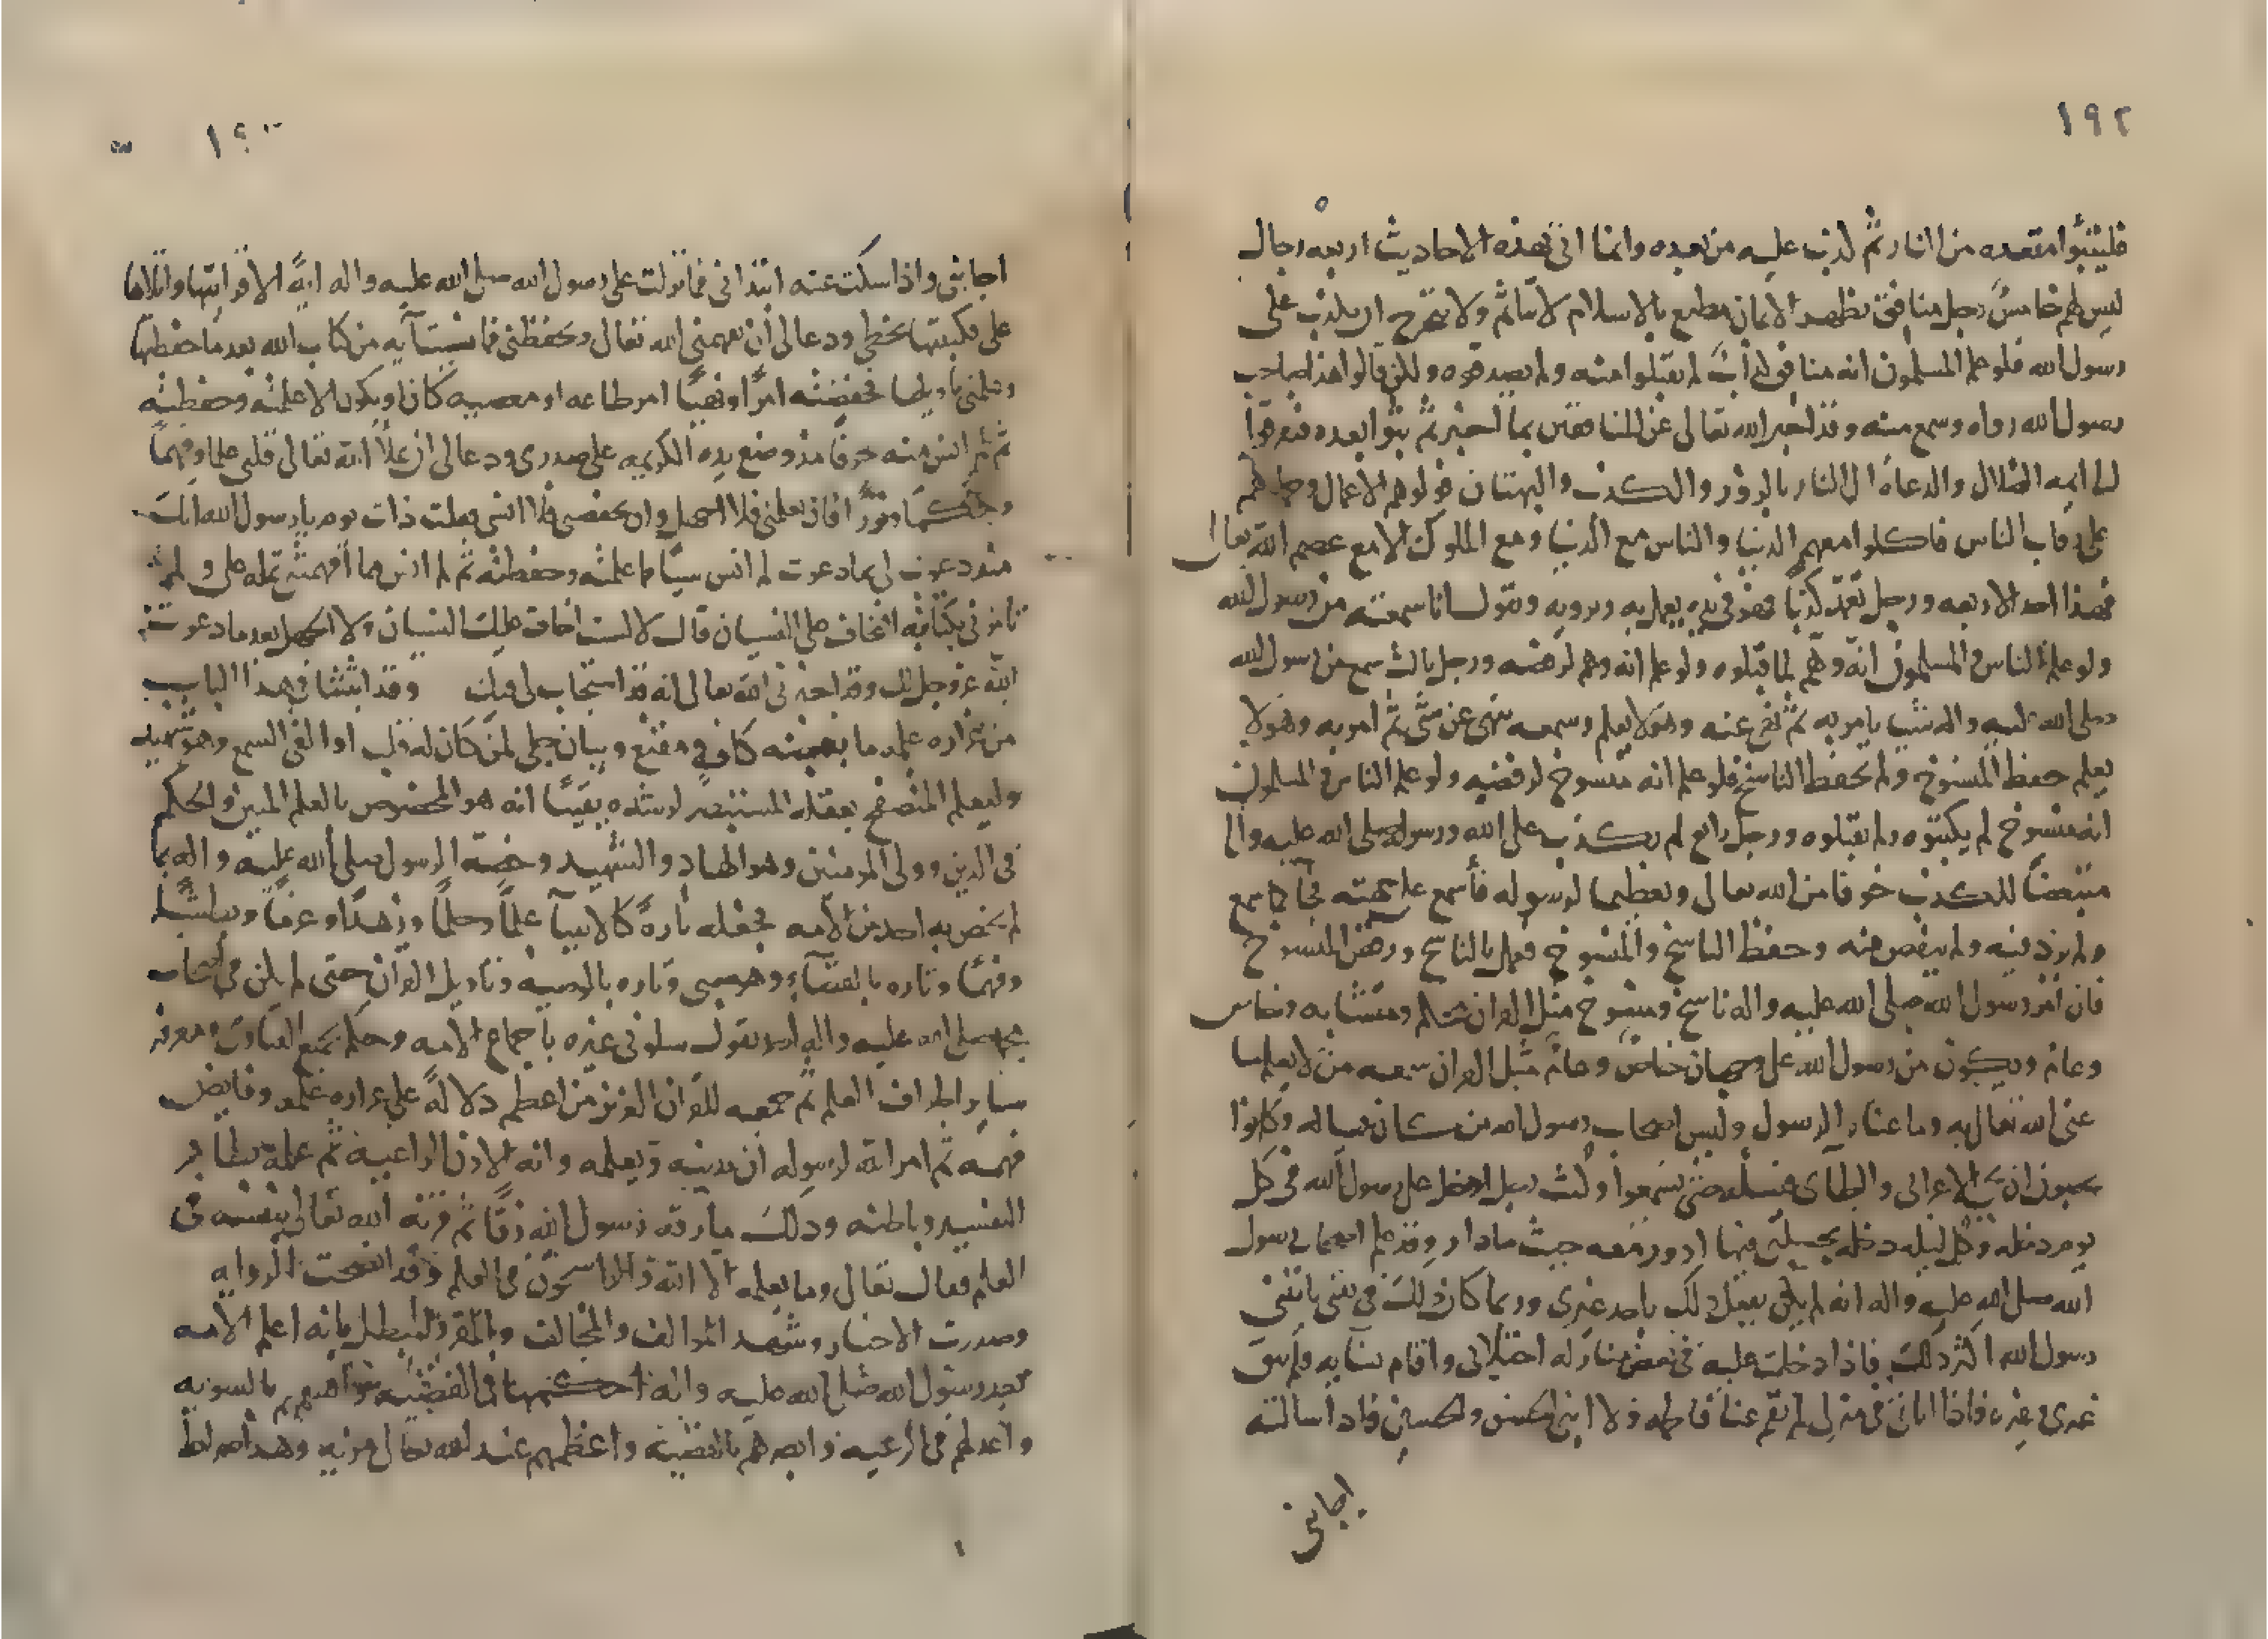 ١٩٢
فليتبوأ مقعده من النار ثم كذب عليه من بعده وانما اتى بهذه الاحاديث اربعه رجال
ليس لهم خامس رجل منافق يظهر الايمان مطيع بالاسلام لا يتاثم ولا يتحرج ان يكذب على
رسول الله فلو علم المسلمون انه منافق كذاب لم يقبلوا منه ولم يصدقوه ولكن قالوا هذا صاحب
رسول الله رواه وسمع منه وقد اخبر الله تعالى عن المنافقين بما اخبر ثم بقوا بعده فتقربوا
الى ايمه الضلال والدعاه الى النار بالزور والكذب والبهتان فولوهم الاعمال وحملوهم
على رقاب الناس فاكلوا معهم الدنيا والناس مع الدنيا ومع الملوك الا مع عصم الله تعالى
فهذا احد الاربعه ورجل تعمد كذبا فهو في يده يعمل به ويرويه ويقول انا سمعته من رسول الله
ولو علم الناس المسلمون انه وهم لما قبلوه ولو علم انه وهم لرفضه ورجل ثالث سمع من رسول الله
صلى الله عليه واله شيئا يامر به ثم نهى عنه وهو لا يعلم وسمعه ينهى عن شي ثم امر به وهو لا
يعلم حفظ المنسوخ ولم يحفظ الناسخ فلو علم انه منسوخ لرفضه ولو علم الناس المسلمون
انه منسوخ لم يكتبوه ولم يقبلوه ورجل رابع لم يكذب على الله ورسوله صلى الله عليه واله
مبغضا للكذب خوفا من الله تعالى وتعظيما لرسوله فاسمع على جهته فجا بما سمع
ولم يزد فيه ولم ينقص منه وحفظ الناسخ والمنسوخ فعمل بالناسخ ورفض المنسوخ
فان امر رسول الله صلى الله عليه واله ناسخ ومنسوخ مثل القران محكم ومتشابه وخاص
وعام ويكون من رسول الله على وجهان خاص وعام مثل القران سمعه من لا يعلم ما
عنى الله تعالى به وما عناه الرسول وليس اصحاب رسول الله من كان يساله وكانوا
يحبون ان يجي الاعرابي والطاري فيسله حتى يسمعوا وكنت رجل ادخل على رسول الله في كل
يوم دخله وكل ليله دخله يخليني فيها ادور معه حيث ما دار وقد علم اصحاب رسول
الله صلى الله عليه واله انه لم يكن يفعل ذلك باحد غيري وربما كان ذلك في بيتي ياتيني
رسول الله اكثر ذلك فاذا دخلت عليه في بعض منازله اختلاني واقام نسايه فلم يبق
غيري وغيره فاذا اتاني في منزلي لم يقم عنا فاطمه ولا ابني الحسن والحسين فاذا سالته
اجابني
اجابني واذا سكت عنه ابتداني فما نزلت على رسول الله صلى الله عليه واله ايه الا اقرانيها واملاها
على فكتبتها بخطي ودعا لي ان يفهمني الله تعالى ويحفظني فما نسيت ايه من كتاب الله بعد ما حفظتها
وعلمني تاويلها فحفظته امرا ونهيا امر طاعه او معصيه كان او يكون الا علمته وحفظته
ثم لم انس منه حرفا مذ وضع يده الكريمه على صدري ودعا لي ان يملا الله تعالى قلبي علما وفهما
وحكما ونورا فان يعلمني فلا اجهل وان يحفظني فلا انسى فقلت ذات يوم يا رسول الله انك
منذ دعوت لي بما دعوت لم انس شيا مما علمته وحفظته ثم لم انس مما افهمته تمله علي ولم
تامرني بكتابته اتخاف علي النسيان قال لا لست اخاف عليك النسيان ولا الجهل بعد ما دعوت
الله عز وجل لك وقد اخبرني الله تعالى انه قد استجاب لي فيك وقد اثبتنا في هذا الباب
من غزاره علمه ما بعضه كاف مقنع وبيان جلي لمن كان له قلب او القى السمع وهو شهيد
وليعلم المتصفح بعقله المستبصر لرشده يقينا انه هو المخصوص بالعلم المبين والحكم
في الدين وولي المومنين وهو الهاد والشهيد وخصه الرسول صلى الله عليه واله بما
لم يخص به احد من الامه فجعله تاره كالانبيا علما وحلما وزهدا وعزما وباشا
وفهما وتاره بالقضاء وعيسى وتاره بالوصيه وتاويل القران حتى لم يكن في اصحاب
محمد صلى الله عليه واله احد يقول سلوني غيره باجماع الامه وحكم بجمع العبادات معرفه
ساير اطراف العلم ثم جمعه للقران العزيز من اعظم دلاله على غزاره علمه وفايض
فهمه ثم امر الله لرسوله ان يدنيه ويعلمه وانه الاذن الواعيه ثم علمه بظاهر
التفسير وباطنه وذلك ما زقه رسول الله زقا ثم قرنه الله تعالى بنفسه في
العلم فقال تعالى وما يعلمه الا الله والراسخون في العلم وقد اتضحت الروايه
وصدرت الاخبار وشهد الموالف والمخالف والمقر والمبطل بانه اعلم الامه
بعد رسول الله صلى الله عليه وانه احكمها في القضيه واقسمهم بالسويه
واعدلهم في الرعيه وابصرهم بالقضيه واعظمهم عند الله تعالى مزيه وهذا صراط